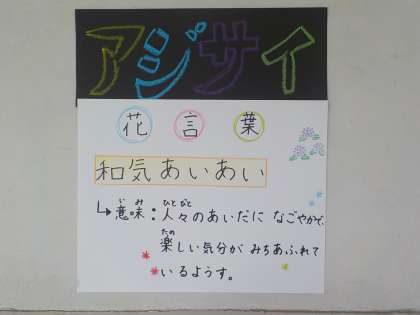 アジサイ
花言葉
和気あいあい
↳意味:人々のあいだに なごやかで、
楽しい気分が みちあふれて
いるようす。